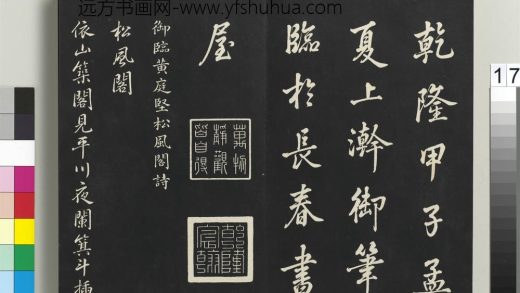 远方书画网-www.yfshuhua.com
乾隆甲子孟
夏上澣御筆
臨於長春書
屋
萬物
靜觀
皆自得
乾隆
宸翰
御臨黃庭堅松風閣詩
松風閣
依山築閣見平川夜闌箕斗插
17